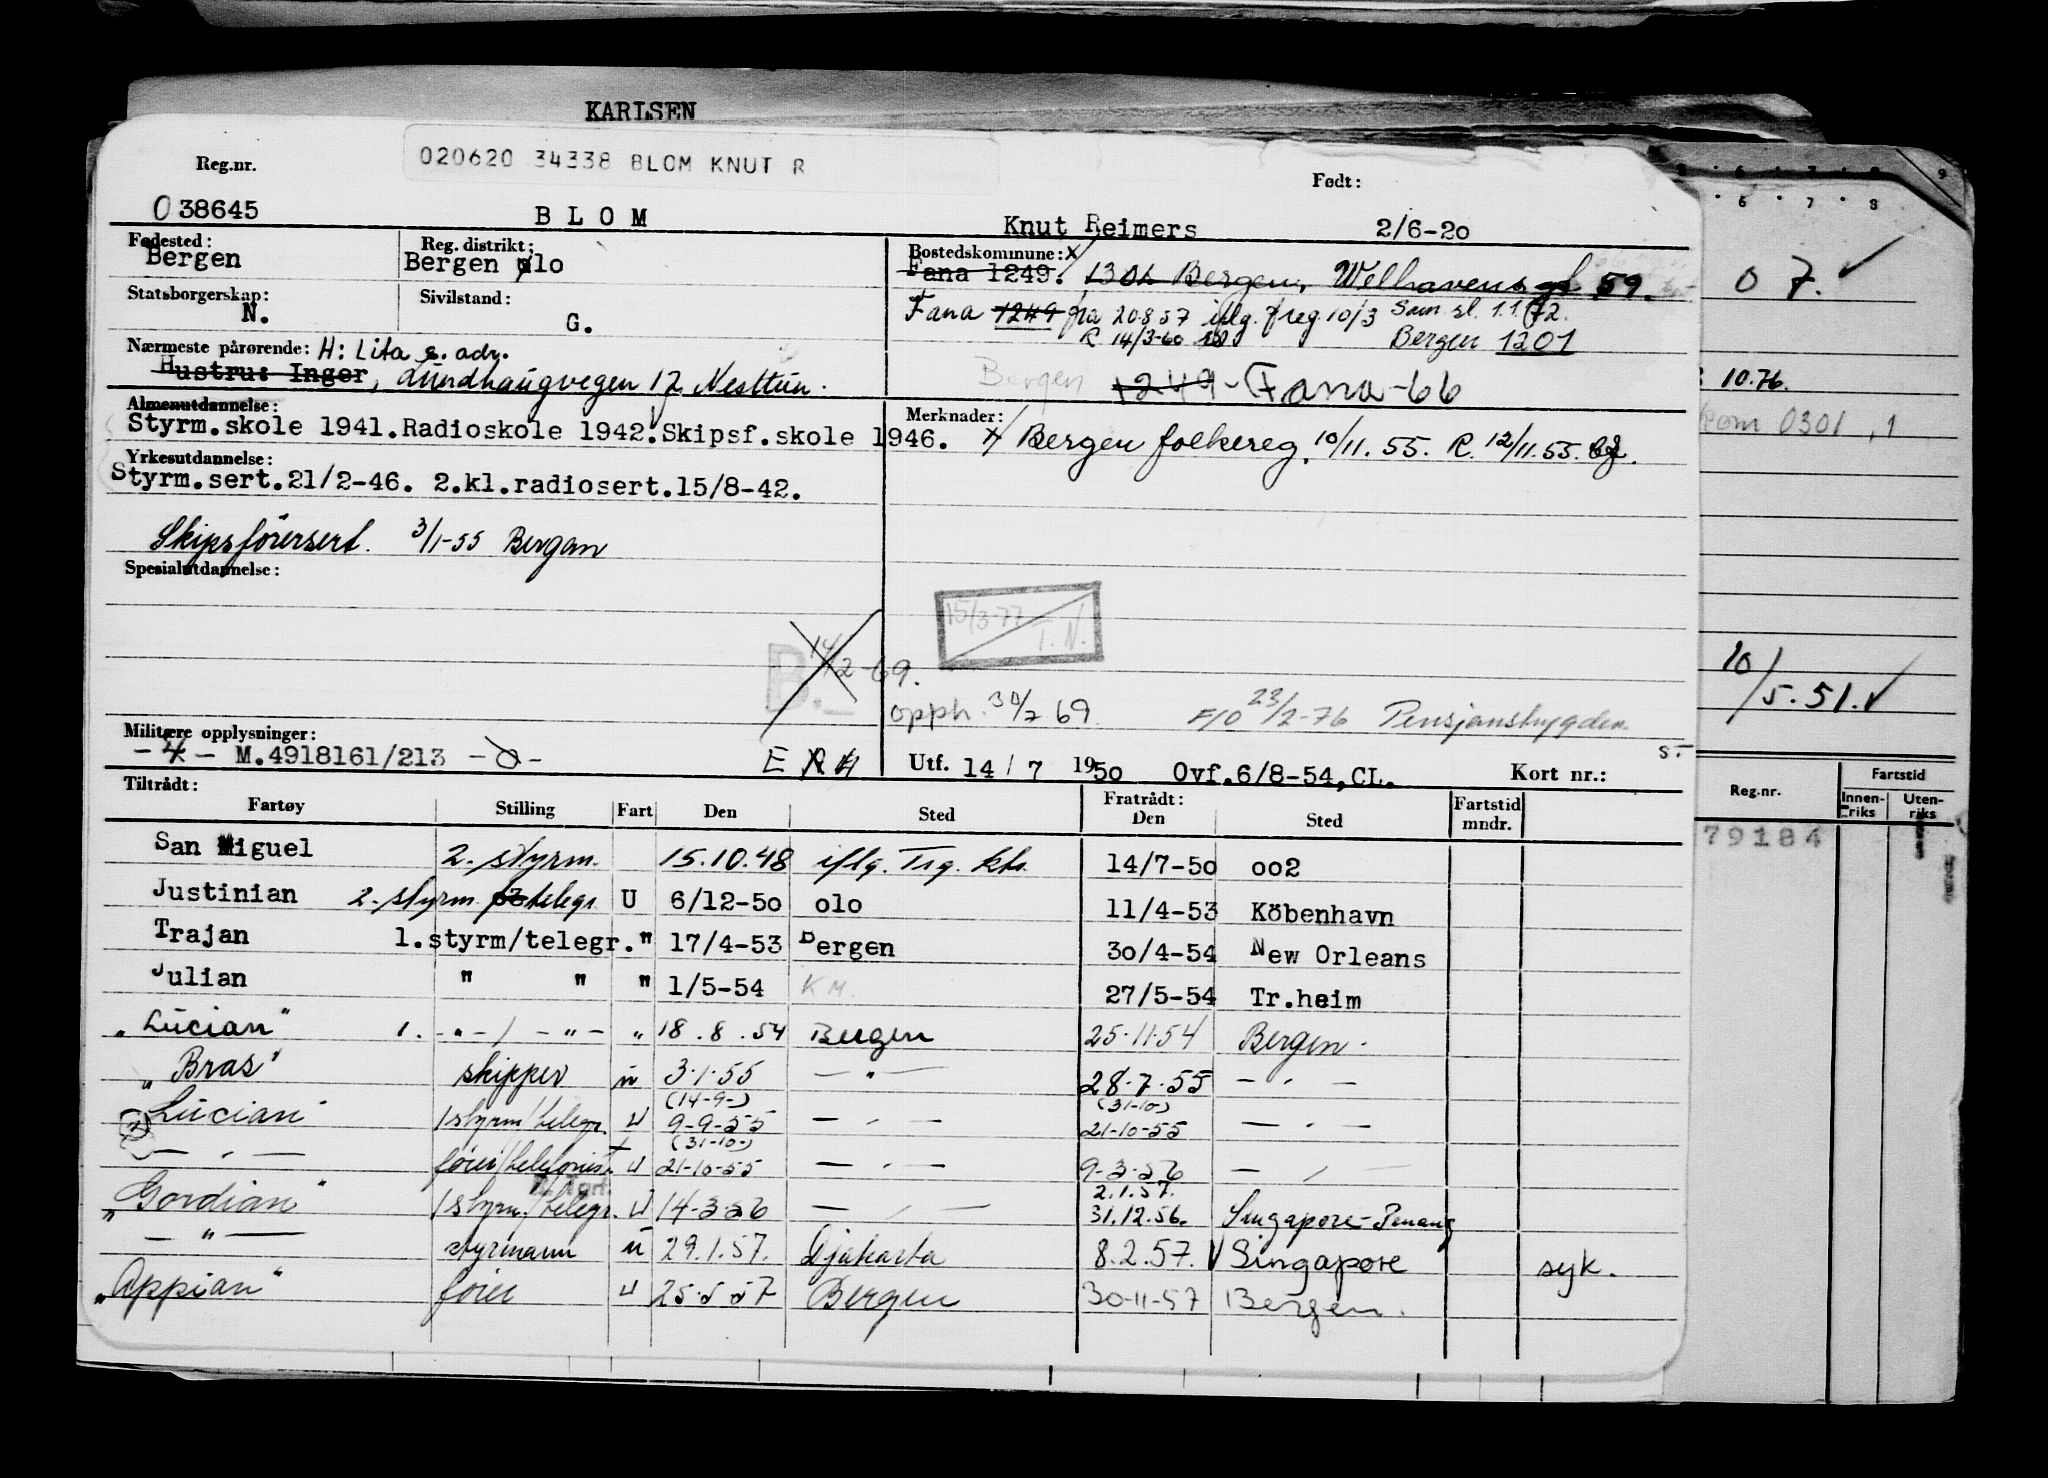 KARLSEN
020620 34338 BLOM KNUT R
Reg.nr.
Født:
038645 BLOM Knut Reimers 2/6-20
Fødested: Bergen
Reg. distrikt: Bergen olo
Bostedskommune: x
Fana 1249. 1301 Bergen, Welhavens gt 59.
Statsborgerskap: N.
Sivilstand: G.
Fana 1249 fra 20.8.57 iflg. freg. 10/3 Sam. sl. 1.1.72.
R 14/3-60
Bergen 1201
Nærmeste pårørende: H: Lita s. adr.
Hustru: Inger, Lundhaugvegen 17 Nesttun.
Bergen 1249 - Fana - 66
Almenutdannelse:
Styrm.skole 1941.Radioskole 1942.Skipsf.skole 1946.
Merknader:
x/ Bergen folkereg. 10/11. 55. R. 12/11.55.
Yrkesutdannelse:
Styrm.sert.21/2-46. 2.kl.radiosert.15/8-42.
Skipsførersert. 3/1-55 Bergen
Spesialutdannelse:
15/3-77 T. N.
B. 14/2-69.
opph. 30/7 69.
F/O 23/2-76 Pensjonstrygden
Militære opplysninger:
-4- M.4918161/213 -0-
E
Utf. 14/7 1950 Ovf.6/8-54,CL. Kort nr.: s.-
Tiltrådt:
Fratrådt:
Fartøy Stilling Fart Den Sted Den Sted Fartstid mndr.
San Miguel 2. styrm. 15.10.48 iflg. Trg. kto. 14/7-50 002
Justinian 2. styrm telegr. U 6/12-50 olo 11/4-53 Köbenhavn
Trajan 1.styrm/telegr. " 17/4-53 Bergen 30/4-54 New Orleans
Julian " " " 1/5-54 KM. 27/5-54 Tr.heim
"Lucian" 1. -"-/-"- " 18.8.54 Bergen 25.11.54 Bergen.
"Bras" skipper u 3.1.55 -"- 28.7.55 -"-
(14-9-) (31-10)
Lucian" 1styrm/telegr. U 9-9-55 -"- 21-10-55 -"-
(31-10-)
-"- fører/telefonist U 21-10-55 -"- 9-3-56 -"-
2.1.57.
"Gordian" 1styrm./telegr. U 14-3-56 -"- 31.12.56. Singapore-Penang
-"- styrmann u 29.1.57. Djakarta 8.2.57. Singapore syk.
"Appian" fører U 25.5.57 Bergen 30-11-57 Bergen.
5 6 7 8 9
6 7 8
0 7.
10.76.
Kom 0301, 1
10/5.51.
Reg.nr.
Fartstid
Innen-riks Uten-riks
79184